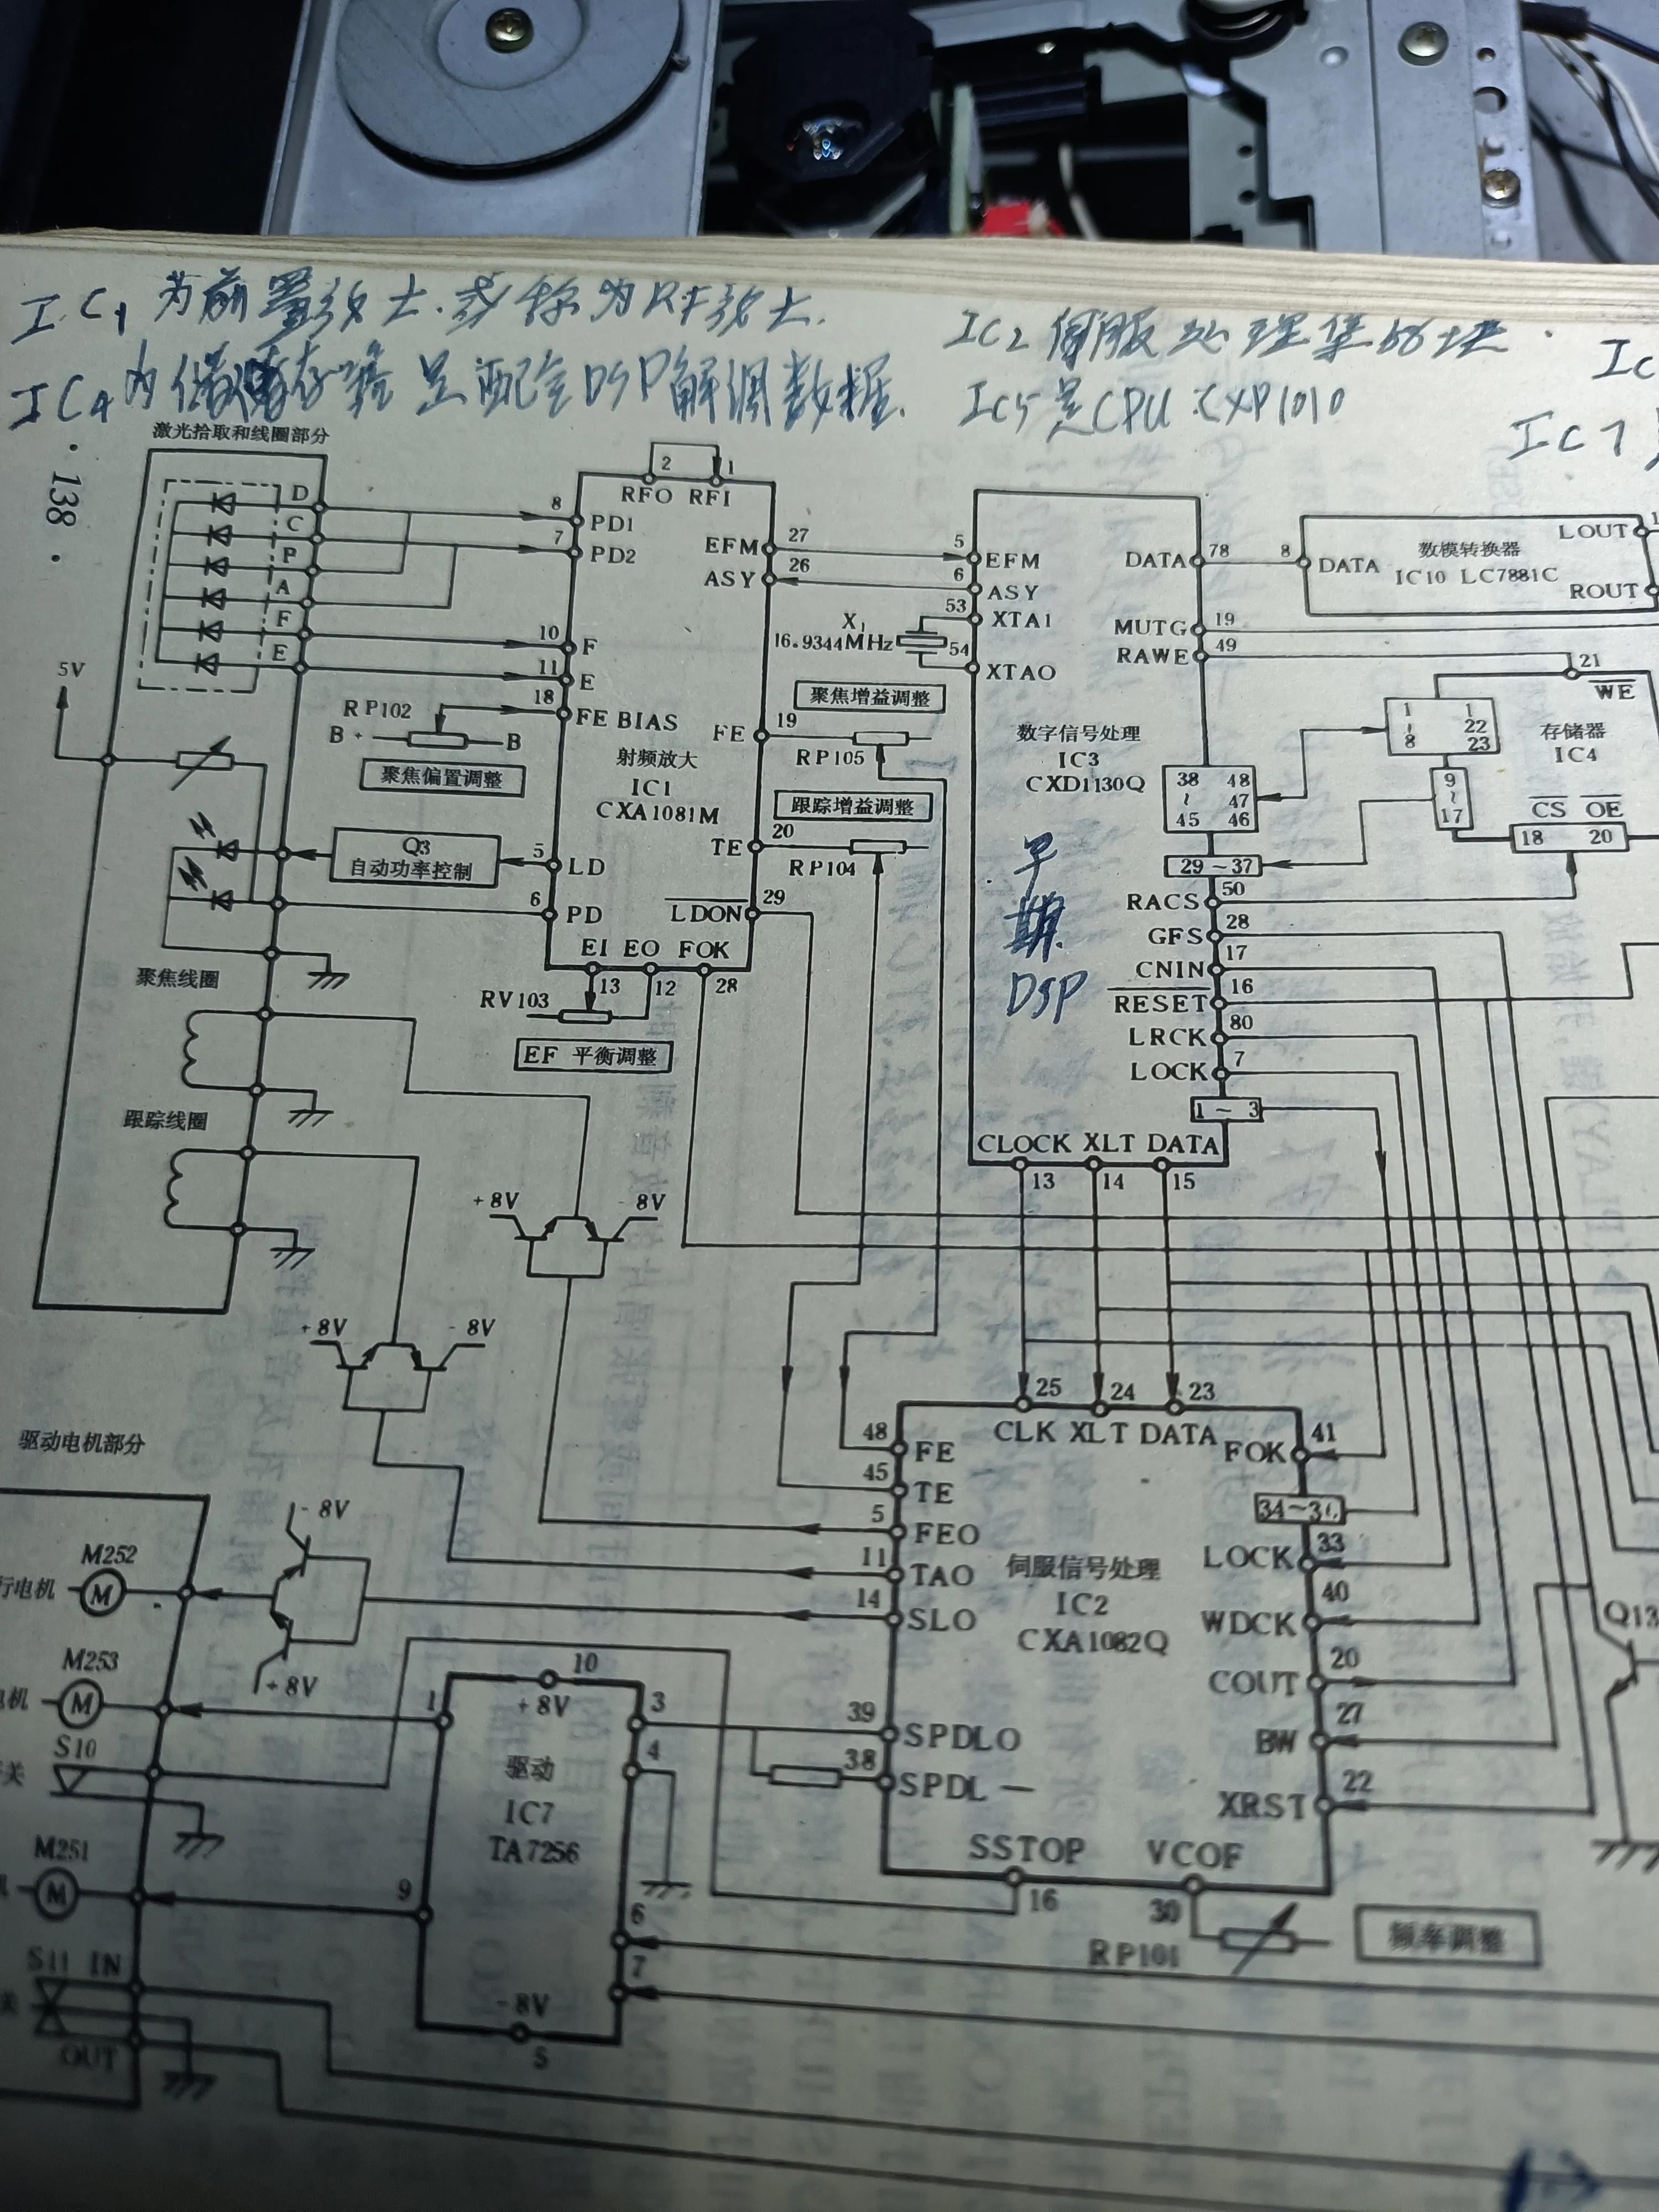 IC1 为前置放大.或称为RF放大.
IC2 伺服处理集成块.
IC4 内储存器 是配合DSP解调数据.
IC5是CPU CXP1010
IC7
激光拾取和线圈部分
·138·
2 1
RFO RFI
D
C
P
A
F
E
8 PD1
7 PD2
10 F
11 E
18 FE BIAS
EFM 27
ASY 26
5 EFM
6 ASY
53 XTA1
X1
16.9344MHz
54 XTAO
DATA 78
8 DATA
数模转换器
IC10 LC7881C
LOUT
ROUT
MUTG 19
RAWE 49
21
WE
5V
RP102
B+ B
聚焦偏置调整
射频放大
IC1
CXA1081M
FE 19
聚焦增益调整
RP105
跟踪增益调整
TE 20
RP104
数字信号处理
IC3
CXD1130Q
早期
DSP
38 48
~ 47
45 46
1 1
~ 22
8 23
存储器
IC4
9
~
17
CS OE
18 20
29~37
Q3
自动功率控制
5 LD
6 PD
LDON 29
EI EO FOK
13 12 28
RV103
EF 平衡调整
RACS 50
GFS 28
CNIN 17
RESET 16
LRCK 80
LOCK 7
1~3
CLOCK XLT DATA
13 14 15
聚焦线圈
跟踪线圈
+8V -8V
+8V -8V
驱动电机部分
25 24 23
CLK XLT DATA
48 FE
45 TE
5 FEO
11 TAO
14 SLO
伺服信号处理
IC2
CXA1082Q
FOK 41
LOCK 33
WDCK 40
COUT 20
BW 27
XRST 22
Q13
39 SPDLO
38 SPDL—
SSTOP VCOF
16 30
RP101
频率调整
-8V
M252
行电机 M
+8V
M253
电机 M
S10
关
M251
M
S11 IN
关
OUT
1
10
+8V
3
4
驱动
IC7
TA7256
9
6
7
-8V
5